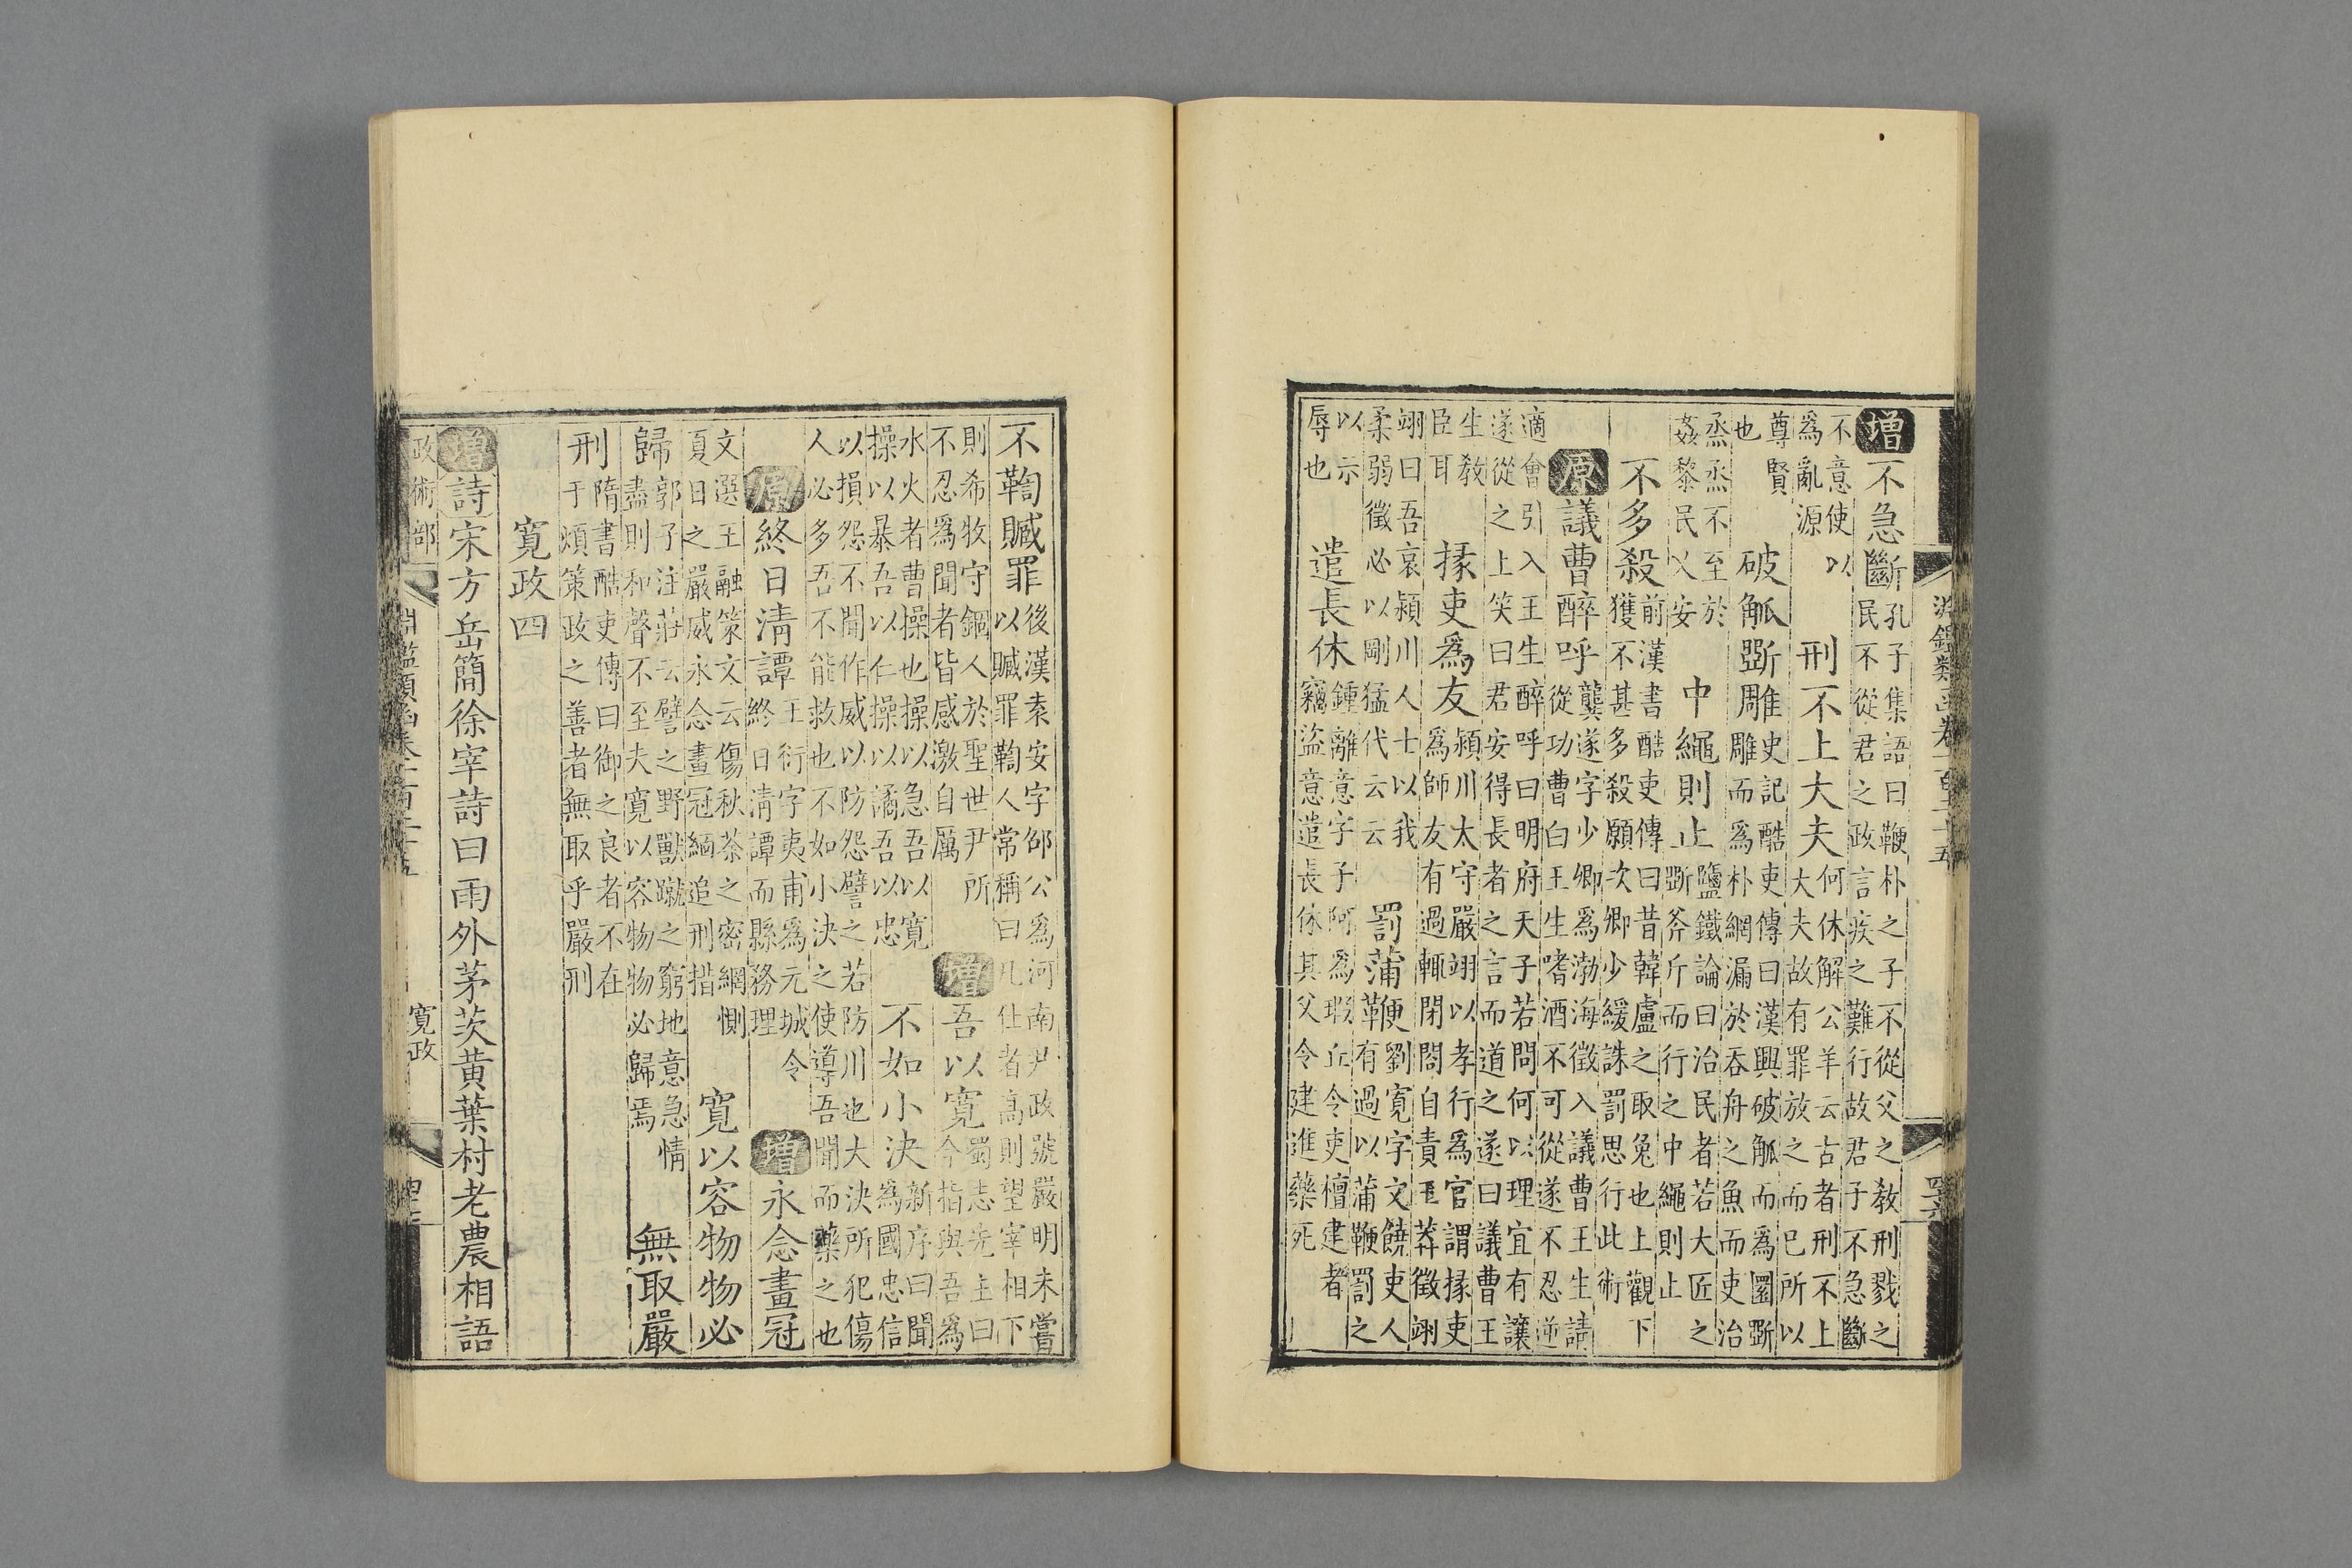 淵鑑類函卷一百二十五
四十六
增不急斷孔子集語曰鞭朴之子不從父之教刑戮之民不從君之政言疾之難行故君子不急斷
不意使以爲亂源刑不上大夫何休解公羊云古者刑不上大夫故有罪放之而已所以
尊賢也破觚斲雕史記酷吏傳曰漢興破觚而爲圜斲雕而爲朴網漏於吞舟之魚而吏治
烝烝不至於姦黎民乂安中繩則止鹽鐵論曰治民者若大匠之斲斧斤而行之中繩則止
不多殺前漢書酷吏傳曰昔韓盧之取兔也上觀下獲不甚多殺願次卿少緩誅罰思行此術
原議曹醉呼龔遂字少卿爲渤海徵入議曹王生請從功曹白王生嗜酒不可從遂不忍逆
適會引入王生醉呼曰明府天子若問何以理宜有讓遂從之上笑曰君安得長者之言而道之遂曰議曹王
生教臣耳掾吏爲友潁川太守嚴翊以孝行爲官謂掾吏爲師友有過輒閉閤自責王莽徵翊
翊曰吾哀潁川人士以我柔弱徵必以剛猛代云云罰蒲鞭劉寬字文饒吏人有過以蒲鞭罰之
以示辱也遣長休鍾離意字子阿爲瑕丘令吏檀建者竊盜意遣長休其父令建進藥死
不鞫贓罪後漢袁安字邵公爲河南尹政號嚴明未嘗以贓罪鞫人常稱曰凡仕者高則望宰相下
則希牧守錮人於聖世尹所不忍爲聞者皆感激自厲增吾以寬蜀志先主曰今指與吾爲
水火者曹操也操以急吾以寬操以暴吾以仁操以譎吾以忠不如小決新序曰聞爲國忠信
以損怨不聞作威以防怨譬之若防川也大決所犯傷人必多吾不能救也不如小決之使導吾聞而藥之也
原終日清譚王衍字夷甫爲元城令終日清譚而縣務理增永念畫冠
文選王融策文云傷秋荼之密網惻夏日之嚴威永念畫冠緬追刑措寬以容物物必
歸郭子注莊云譬之野獸蹴之窮地意急情盡則和聲不至夫寬以容物物必歸焉無取嚴
刑隋書酷吏傳曰御之良者不在于煩策政之善者無取乎嚴刑
寬政四
增詩宋方岳簡徐宰詩曰雨外茅茨黃葉村老農相語
政術部
淵鑑類函卷一百二十五
寬政